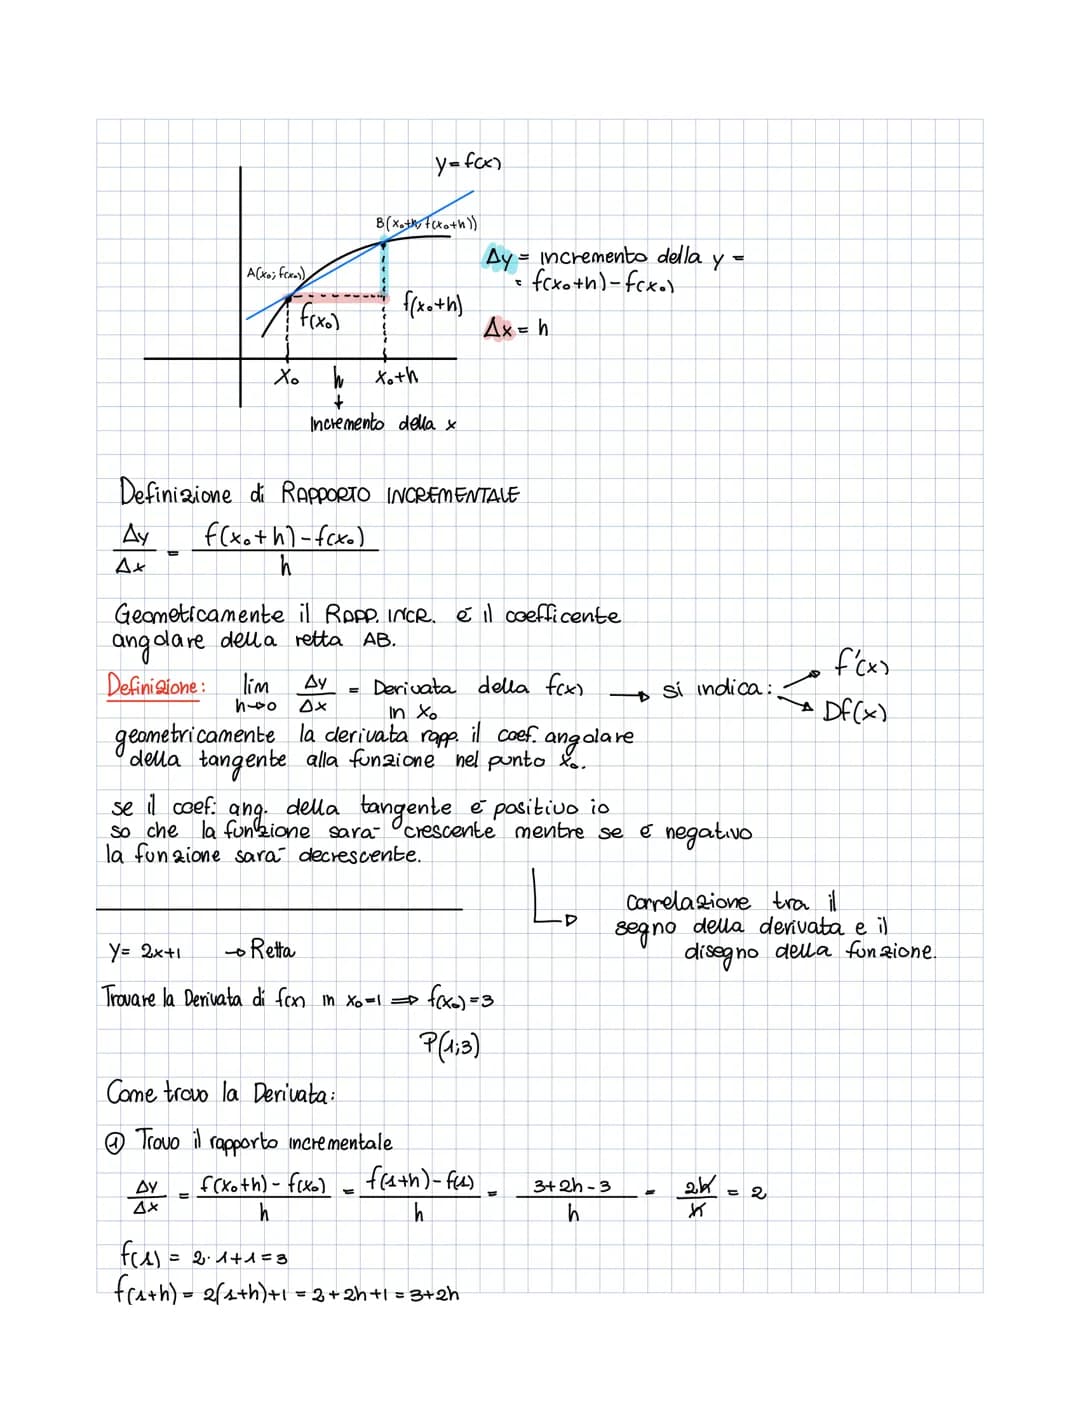 y=f(x)
B(x₀+h; f(x₀+h))
A(x₀; f(x₀))
Δy = incremento della y =
= f(x₀+h)-f(x₀)
f(x₀)
f(x₀+h)
Δx = h
x₀ h x₀+h
Incremento della x
Definizione di RAPPORTO INCREMENTALE
Δy/Δx = (f(x₀+h)-f(x₀))/h
Geometicamente il RAPP. INCR. é il coefficente
angolare della retta AB.
Definizione: lim h→0 Δy/Δx = Derivata della f(x) in x₀ → si indica: f'(x)
Df(x)
geometricamente la derivata rapp. il coef. angolare
della tangente alla funzione nel punto x₀.
se il coef. ang. della tangente é positivo io
so che la funzione sara- crescente mentre se é negativo
la funzione sara- decrescente.
correlazione tra il
segno della derivata e il
disegno della funzione.
y= 2x+1 → Retta
Trovare la Derivata di f(x) in x₀=1 ⇒ f(x₀)=3
P(1;3)
Come trovo la Derivata:
① Trovo il rapporto incrementale
Δy/Δx = (f(x₀+h)-f(x₀))/h = (f(1+h)-f(1))/h = (3+2h-3)/h = 2h/h = 2
f(1) = 2·1+1=3
f(1+h) = 2(1+h)+1 = 2+2h+1 = 3+2h